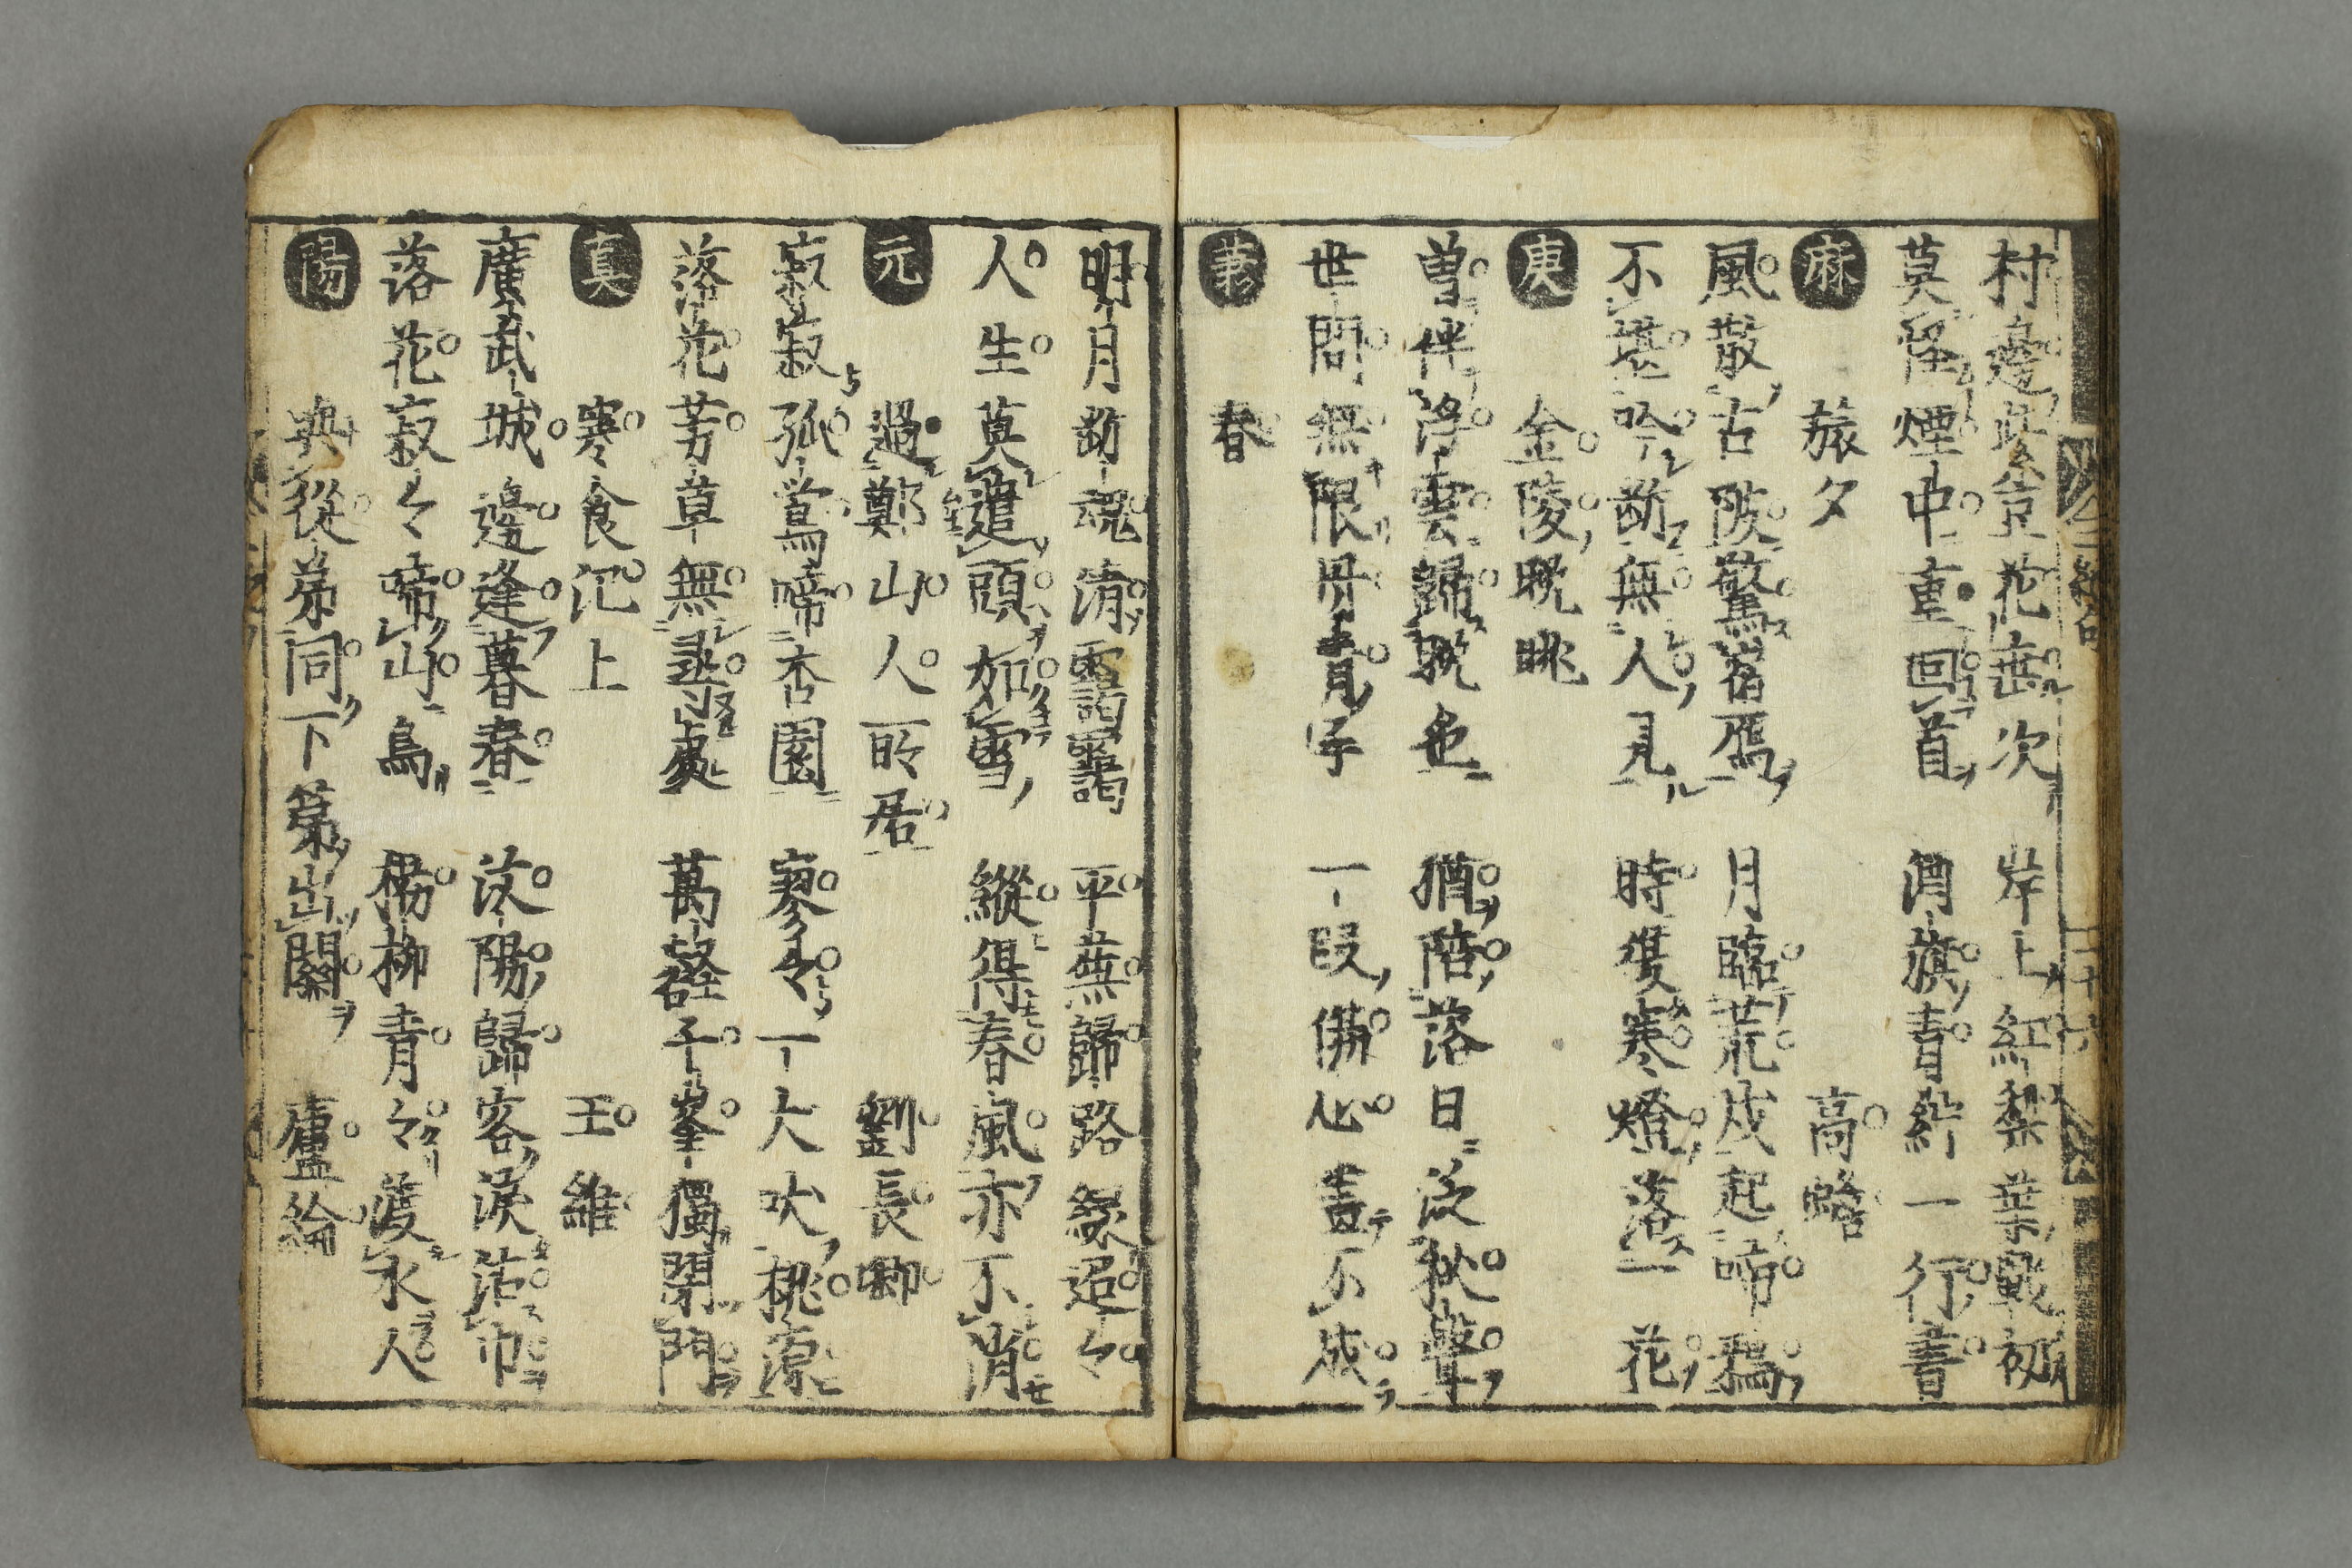 村邊紫荳花垂次　岸上紅梨葉戰初
莫怪煙中重回首　酒旗青紵一行書
麻　旅夕　高蟾
風散古陂驚宿鴈　月臨荒戍起啼鴉
不堪吟斷無人見　時復寒燈落一花
庚　金陵晚眺
曽伴浮雲歸晚色　猶陪落日泛秋聲
世間無限丹青手　一段傷心畫不成
蕭　春
明月斷魂清靄靄　平蕪歸路綠迢々
人生莫遣頭如雪　縱得春風亦不消
元　過鄭山人所居　劉長卿
寂寂孤鶯啼杏園　寥々一犬吠桃源
落花芳草無尋處　萬壑千峯獨閉門
真　寒食汜上　王維
廣武城邊逢暮春　汶陽歸客淚沾巾
落花寂々啼山鳥　楊柳青々渡水人
陽　與從弟同下第出關　盧綸